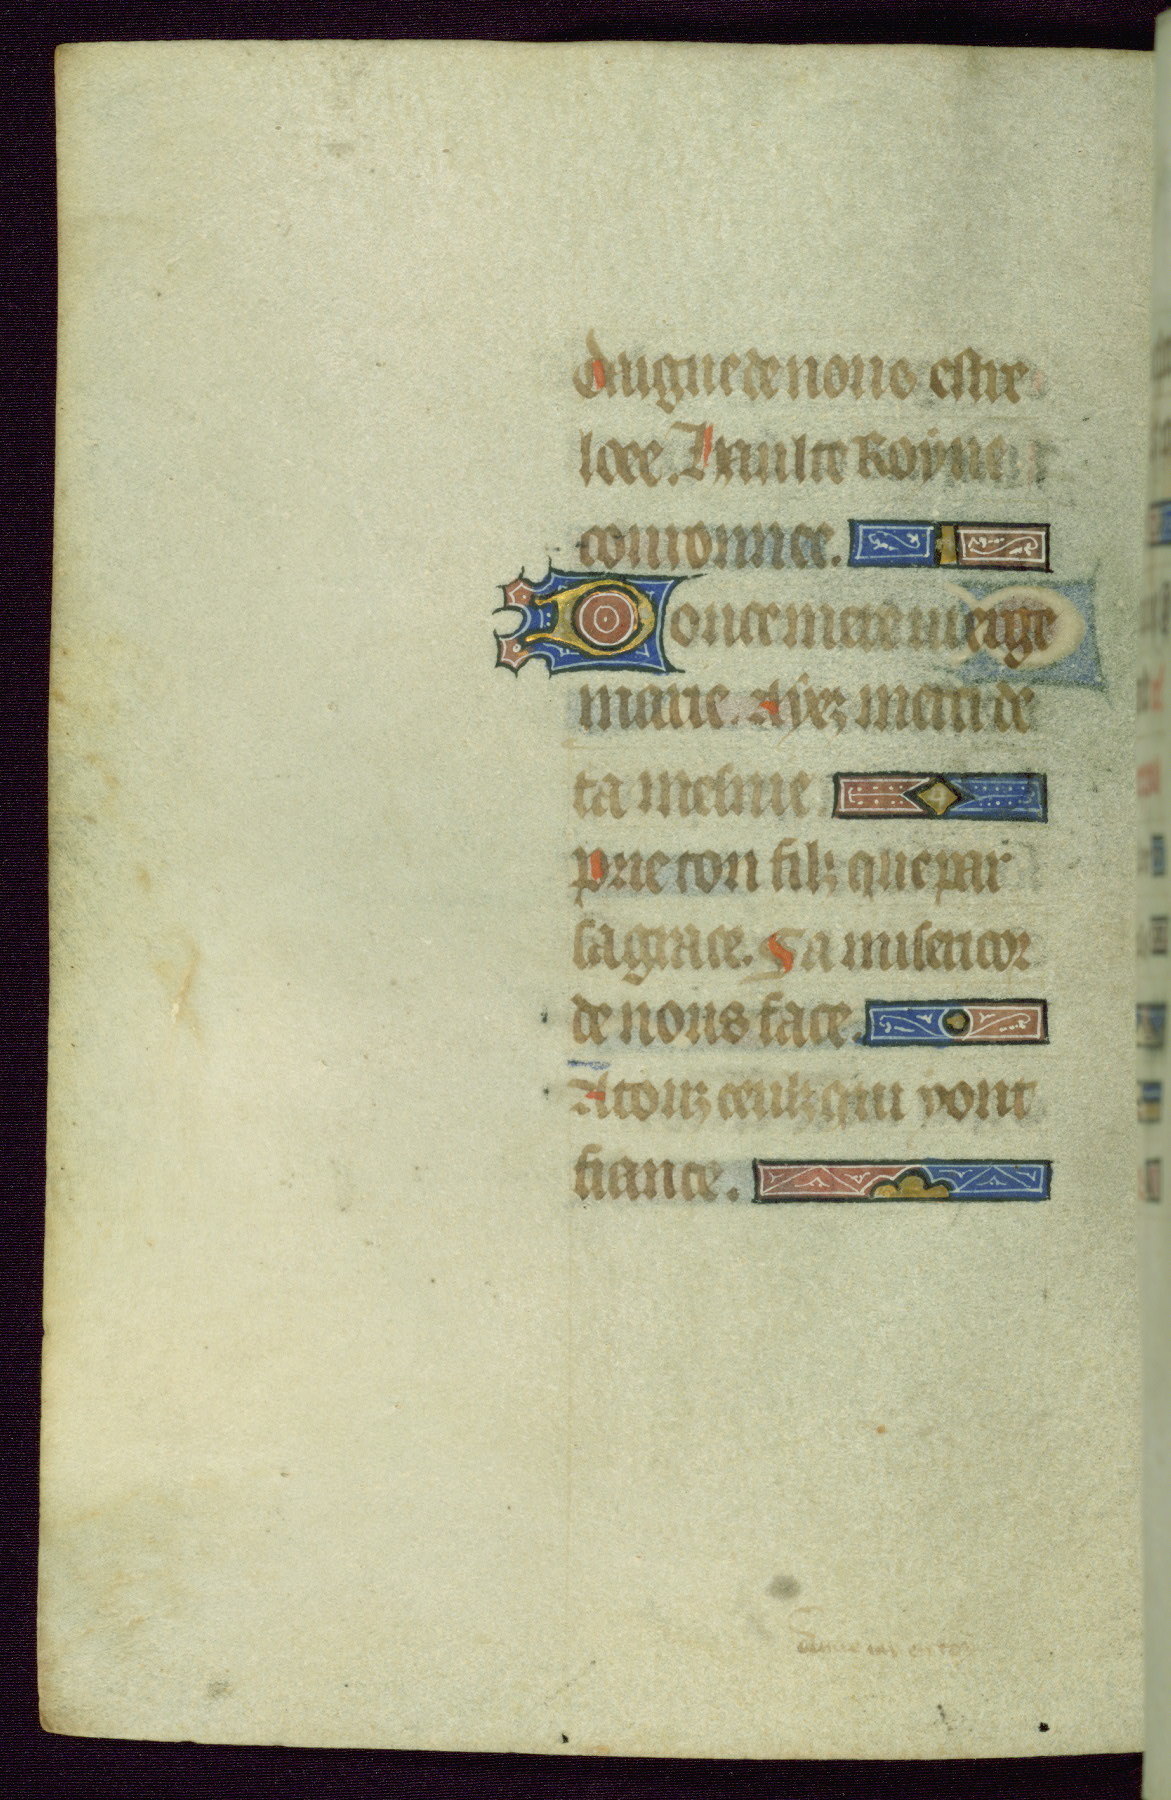 digne de nous estre
loee. Haulte Royne
couronnee.
Doulce mere vierge
marie. Ayez merci de
ta mesnie
prie ton filz que par
sa grace. Sa misericor
de nous face.
A touz ceulz qui y ont
fiance.